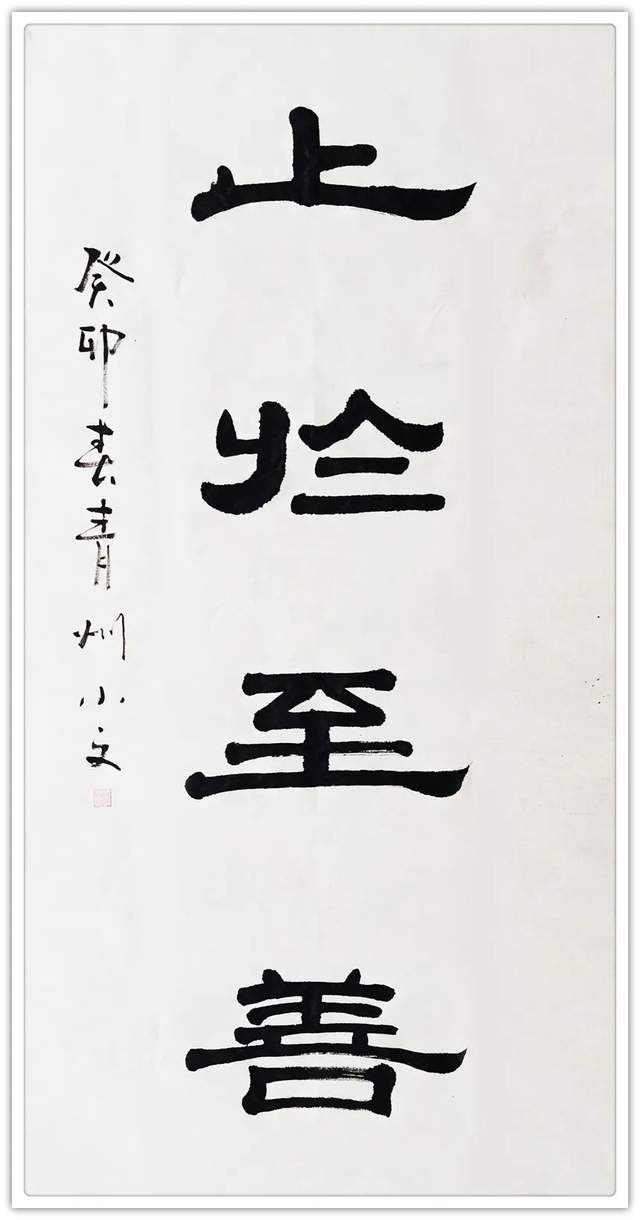 止於至善
癸卯春青州小文